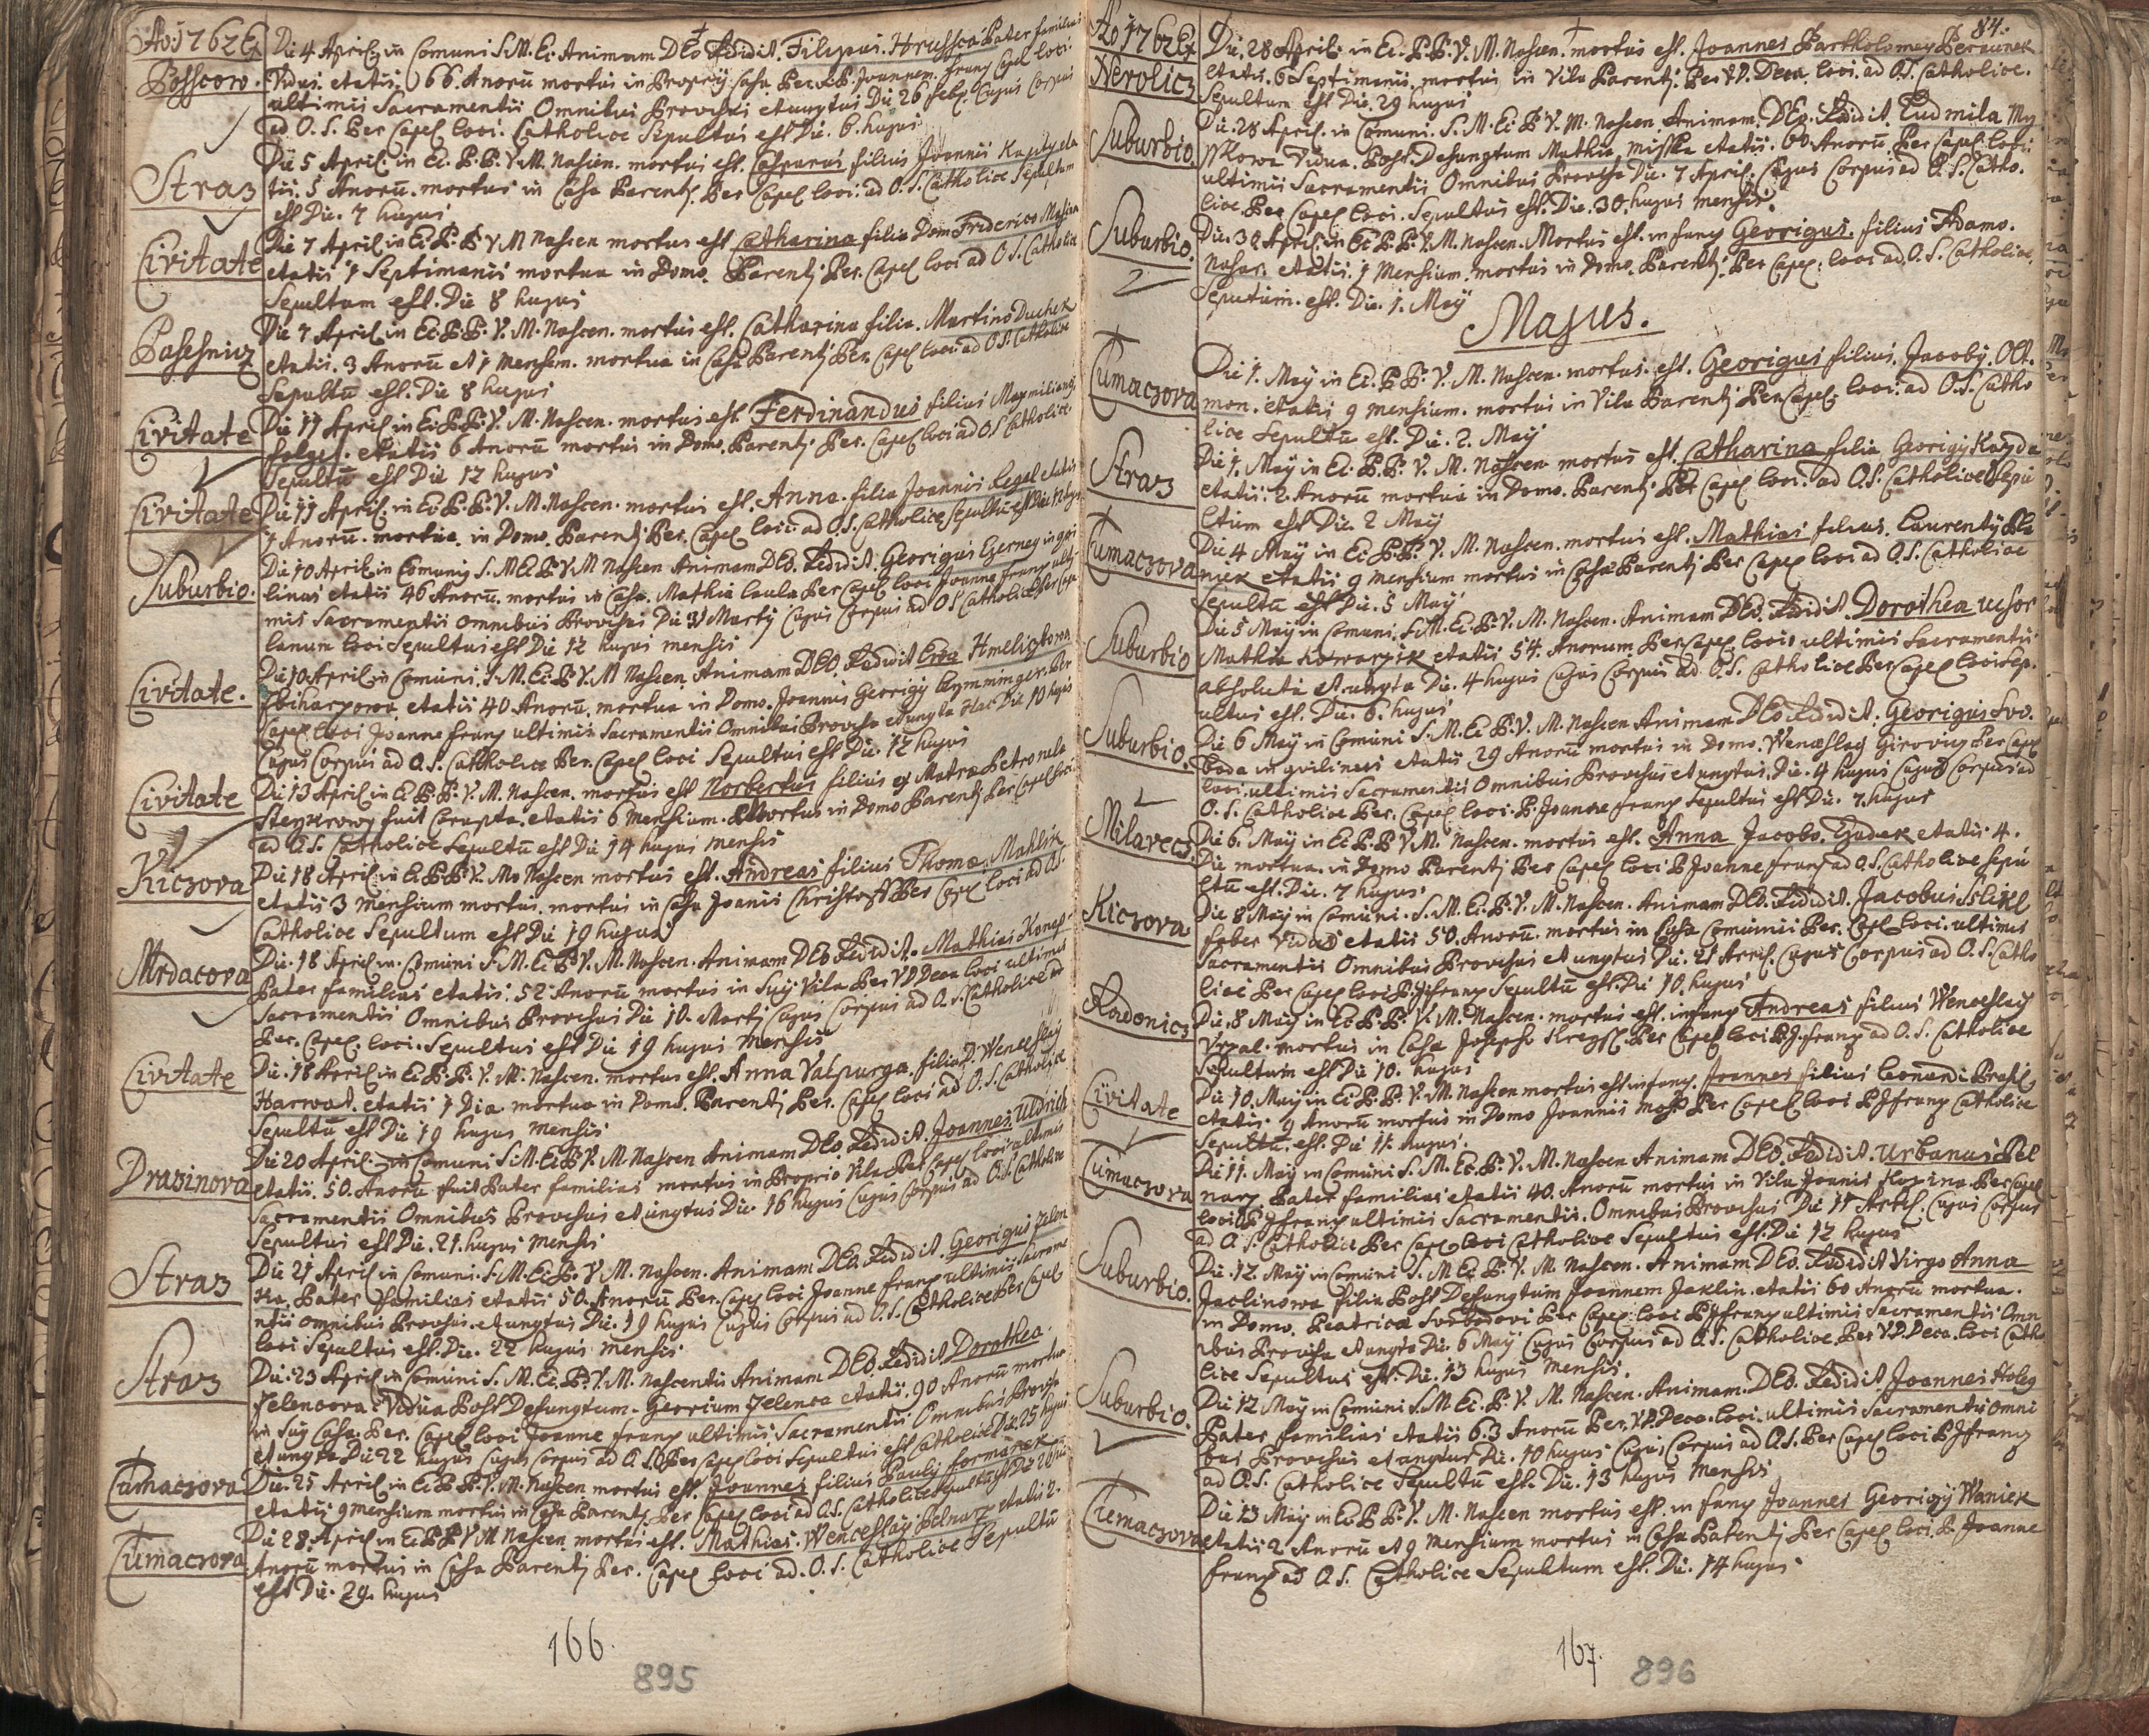 Ao 1762 Ex
Die 4 April in Comuni S.M.Ec. Animam DEo Redidit. Filipus. Hrussca Pater familias
Posscow.
Vidus. etatis 66. Anorũ mortus in Casa Per Joannem. Franz Capel loci.
ultimis Sacramentis Omnibus Provisus et unctus Die 26 Feb. Cujus Corpus
ad O. S. Per Capel loci. Catholice Sepultus est Die. 6. hujus
Straz
Die 5 April. in Ec. P.P. V.M. Nascen. mortus est. Casparus filius Joannis eta
tis. 5 Anorũ. mortus in Casa Parentj. Per Capel loci. ad O. S. Catholice Sepultum
est Die. 7 hujus
Civitate
Die 7 April in Ec. P. P V M Nascen mortus est Catharina filia Dom. Friderico
etatis 7 Septimanis mortua in Domo. Parentj Per. Capel loci ad O. S. Catholice
Sepultum est. Die 8 hujus
Pasesnicz
Die 7 April in Ec. P.P. V. M. Nascen. mortus est. Catharina filia. Martino Duchek
etatis. 3 Anorũ et 1 Mensem. mortua in Casa Parentj Per. Capel loci. ad O S. Catholice
Sepultũ est. Die 8 hujus
Civitate
Die 11 April in Ec. P.P. V. M. Nascen. mortus est. Ferdinandus filius Maxmiliano
etatis 6 Anorũ mortus in Domo. Parentj Per. Capel loci ad O S Catholice
Sepultũ est Die 12 hujus
Civitate
Die 11 April. in Ec. P. P. V. M. Nascen. mortus est. Anna. filia Joannis Legel etatis
7 Anorũ. mortua. in Domo. Parentj Per. Capel loci. ad O. S. Catholice Sepultũ est Die 12 hujus
Suburbio.
Die 10 April in Comuni S. M Ec. P V M Nascen Animam DEo. Redidit. Georigus Czerney
linus etatis 46 Anorũ. mortus in Casa. Mathia Caula Per Capel loci Joanne Franz ulti
mis Sacramentis omnibus Provisus Die 31 Martj Cujus Corpus ad O S Catholice Per Cape
lanum loci Sepultus est Die 12 hujus mensis
Civitate.
Die 10 April in Comuni. S. M. Ec. P V. M Nascen. Animam DEo. Redidit Eva
etatis 40 Anorũ. mortua in Domo. Joannis Georigij Per
Capel loci Joanne Franz ultimis Sacramentis Omnibus Provisa et uncta Hac Die 10 hujus
Cujus Corpus ad O. S. Catholice Per. Capel loci Sepultus est Die. 12 hujus
Civitate
Die 13 April in Ec P. P. V. M. Nascen. mortus est Norbertus filius Matre Petronela
fuit Corupta. etatis 6 Mensium. Mortus in Domo Parentj Per Capel loci
ad O. S. Catholice Sepultũ est Die 14 hujus mensis
Kiczova
Die 18 April in Ec P.P. V. M. Nascen mortus est. Andreas filius Thomæ Mahlik
etatis 3 Mensium mortus. mortus in Casa Joanis Per Capel loci ad O S.
Catholice Sepultum est Die 19 hujus
Mrdacova
Die. 18 April in. Comuni S M. Ec P V. M. Nascen. Animam DEo Redidit. Mathias
Pater familias etatis. 52 Anorũ mortus in Suy Vila Per V P Deca loci ultimis
Sacramentis Omnibus Provisus Die 10. Martj Cujus Corpus ad O. S. Catholice
Per. Capel. loci. Sepultus est Die 19 hujus Mensis
Civitate
Die. 18 April in Ec. P. P. V. M. Nascen. mortus est. Anna Valpurga. filia D. Wenceslay
Harwat. etatis 1 Dia. mortua in Domo. Parentj Per. Capel loci ad O. S. Catholice
Sepultũ est Die 19 hujus Mensis
Drazinova
Die 20 April. in Comuni S. M. Ec. P. V. M. Nascen Animam DEo. Redidit. Joannes Uldrich
etatis. 50. Anorũ fuit Pater familias mortus in Proprio Vila Per Capel loci ultimis
Sacramentis Omnibus Provisus et unctus Die. 16 hujus Cujus Corpus ad O. S. Catholice
Sepultus est Die. 21. hujus Mensis
Straz
Die 21 April in Comuni. S. M. Ec. P. V M. Nascen. Animam DEo. Redidit. Georigus Jelen
ka. Pater familias etatis 50. Anorũ Per. Capel loci Joanne Franz ultimis Sacrame
ntis omnibus Provisus. et unctus Die. 19 hujus Cujus Corpus ad O. S. Catholice Per Capel
loci Sepultus est. Die. 22 hujus mensis
Straz
Die. 23 April in Comuni S. M. Ec. P. V. M. Nascentis Animam DEo. Redidit Dorothea.
Jelencova. Vidua Post Defunctum. Georium Jelenca etatis. 90 Anorũ mortua
in Suy Casa. Per. Capel loci Joanne Franz ultimis Sacramentis. Omnibus Provisa
et uncta Die 22 hujus Cujus Corpus ad O. S. Per Capel loci Sepultus est Catholice Die 25 hujus
Tumaczova
Die. 25 April in Ec. P P. V. M. Nascen mortus est. Joannes filius Paulj Formanek
etatis 9 mensium mortus in Casa Parentj. Per Capel loci ad O. S. Catholice Sepultus est Die
Tumaczova
Die 28 April in Ec. P P V M Nascen. mortus est. Mathias. Wenceslay Pelnarz etatis 2.
Anorũ mortus in Casa Parentj Per. Capel loci ad. O. S. Catholice Sepultũ
est Die. 29. hujus
166.
895
Ao 1762 Ex
84.
Die. 28 April. in Ec. P. P. V. M. Nascen. mortus est. Joannes Bartholomey Beraunek
Nevolicz
etatis. 6 Septimanis. mortus in Vila Parentj. Per V P. Deca loci. ad O. S. Catholice.
Sepultum est Die. 29 hujus
Suburbio.
Die. 28 April. in Comuni. S. M. Ec P V. M. Nascen. Animam. DEo. Redidit. Ludmila My
sskowa Vidua. Post. Defunctum Mathia Misska etatis. 60 Anorũ. Per Capel loci.
ultimis Sacramentis Omnibus Provisa Die. 7 April. Cujus Corpus ad O. S. Catho.
lice. Per Capel loci. Sepultus est. Die. 30. hujus mensis.
Suburbio.
Die. 30 April. in Ec P. P. V. M. Nascen. Mortus est. infanz Georigus. filius Adamo.
etatis. 1 Mensium. mortus in Domo. Parentj. Per Capel. loci ad O. S. Catholice.
Sepultum. est. Die. 1. May
Majus.
Tumaczova
Die 1. May in Ec. P. P. V. M. Nascen. mortus. est. Georigus filius. Jacoby. Ott.
mon. etatis 9 mensium. mortus in Vila Parentj Per Capel. loci. ad O. S. Catho
lice Sepultũ est. Die. 2. May
Straz
Die 1. May in Ec. P. P. V. M. Nascen. mortus est. Catharina filia Georigy Kayda
etatis. 2 Anorũ mortua in Domo. Parentj Per Capel loci. ad O. S. Catholice Sepu
ltum est Die. 2 May
Tumaczova
Die 4 May in Ec. P. P. V. M. Nascen. mortus est. Mathias filius. Laurentj Bla
etatis 9 mensium mortus in Casa Parentj Per Capel loci ad O. S. Catholice
Sepultũ est Die. 5 May
Suburbio
Die 5 May in Comuni. S. M. Ec. P. V. M. Nascen. Animam DEo. Redidit. Dorothea ucsor
Mathia Kowarzik etatis 54. Anorum. Per Capel loci ultimis Sacramentis
absoluta et uncta Die. 4 hujus Cujus Corpus ad. O. S. Catholice Per Capel loci Sep.
ultus est. Die. 6. hujus
Suburbio.
Die 6 May in Comuni S. M. Ec. P. V. M. Nascen Animam DEo Redidit. Georigus Svo.
boda etatis 29 Anorũ mortus in Domo. Wenceslay Per Capel
loci. ultimis Sacramentis Omnibus Provisus et unctus. Die. 4 hujus Cujus Corpus ad
O. S. Catholice Per. Capel loci. P. Joanne Franz Sepultus est Die. 7. hujus
Milavecz
Die 6. May in Ec P. P V M. Nascen. mortus est. Anna Jacobo. etatis 4.
Die mortua. in Domo Parentj Per Capel loci P Joanne Franz ad O. S. Catholice Sepu
ltũ est. Die. 7 hujus
Kiczova
Die 8 May in Comuni. S. M. Ec. P. V. M. Nascen. Animam DEo. Redidit. Jacobus Sslikl
faber Vidus etatis 50. Anorũ. mortus in Casa Comunis Per. Capel loci. ultimis
Sacramentis Omnibus Provisus et unctus Die. 21 April. Cujus Corpus ad O. S. Catho
lice Per Capel loci P. J. Franz Sepultũ est. Die 10. hujus
Radonicz
Die. 8 May in Ec P. P. V. M. Nascen. mortus est. infanz Andreas filius Wenceslay
mortus in Casa Josepho Per Capel loci P. J. Franz ad O. S. Catholice
Sepultum est Die 10. hujus
Civitate
Die 10. May in Ec P. P. V. M. Nascen mortus est infanz. Joannes filius Leonardi
etatis. 9 Anorũ mortus in Domo Joannis Per Capel loci P J Franz Catholice
Sepultũ. est. Die 11. hujus.
Tumaczova
Die 11. May in Comuni S. M. Ec. P. V. M. Nascen Animam DEo. Redidit. Urbanus Pel
narz Pater familias etatis 40. Anorũ mortus in Vila Joanis Per Capel
loci P J Franz ultimis Sacramentis. Omnibus Provisus Die 11 April. Cujus Corpus
ad O. S. Catholice Per Capel loci Catholice Sepultus est. Die 12 hujus
Suburbio.
Die. 12. May in Comuni S. M Ec P. V. M. Nascen. Animam DEo. Redidit Virgo Anna
Jaclinowa filia Post Defunctum Joannem Jaklin. etatis 60 Anorũ mortua.
in Domo. Beatrice Per Capel. loci P J Franz ultimis Sacramentis Omn
ibus Provisa et uncta Die. 6 May Cujus Corpus ad O. S. Catholice. Per V. P. Deca. loci Catho
lice Sepultus est. Die. 13 hujus Mensis.
Suburbio.
Die 12 May in Comuni S. M. Ec. P. V. M. Nascen. Animam. DEo. Redidit Joannes Holey
Pater familias etatis 63 Anorũ Per. V P. Deca. loci. ultimis Sacramentis Omni
bus Provisus et unctus Die. 10 hujus Cujus Corpus ad O. S. Per Capel loci P J Franz
ad O. S. Catholice Sepultũ est. Die. 13 hujus Mensis
Tumaczova
Die 13 May in Ec P. P. V. M. Nascen mortus est. infanz Joannes Georigij Waniek
etatis 2 Anorũ et 9 Mensium mortus in Casa Parentj Per Capel loci P. Joanne
Franz ad O. S. Catholice Sepultum est. Die. 14 hujus
167.
896